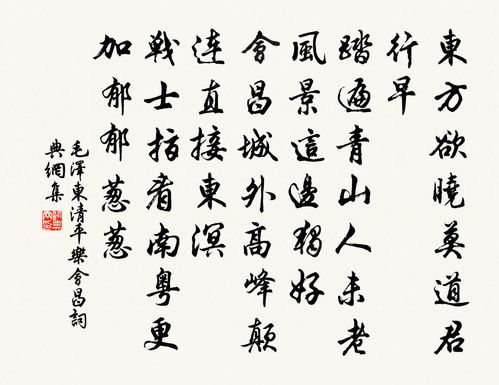 東方欲曉莫道君
行早
踏遍青山人未老
風景這邊獨好
會昌城外高峰顛
連直接東溟
戰士指看南粵更
加郁郁蔥蔥
毛澤東清平樂會昌詞
典網集